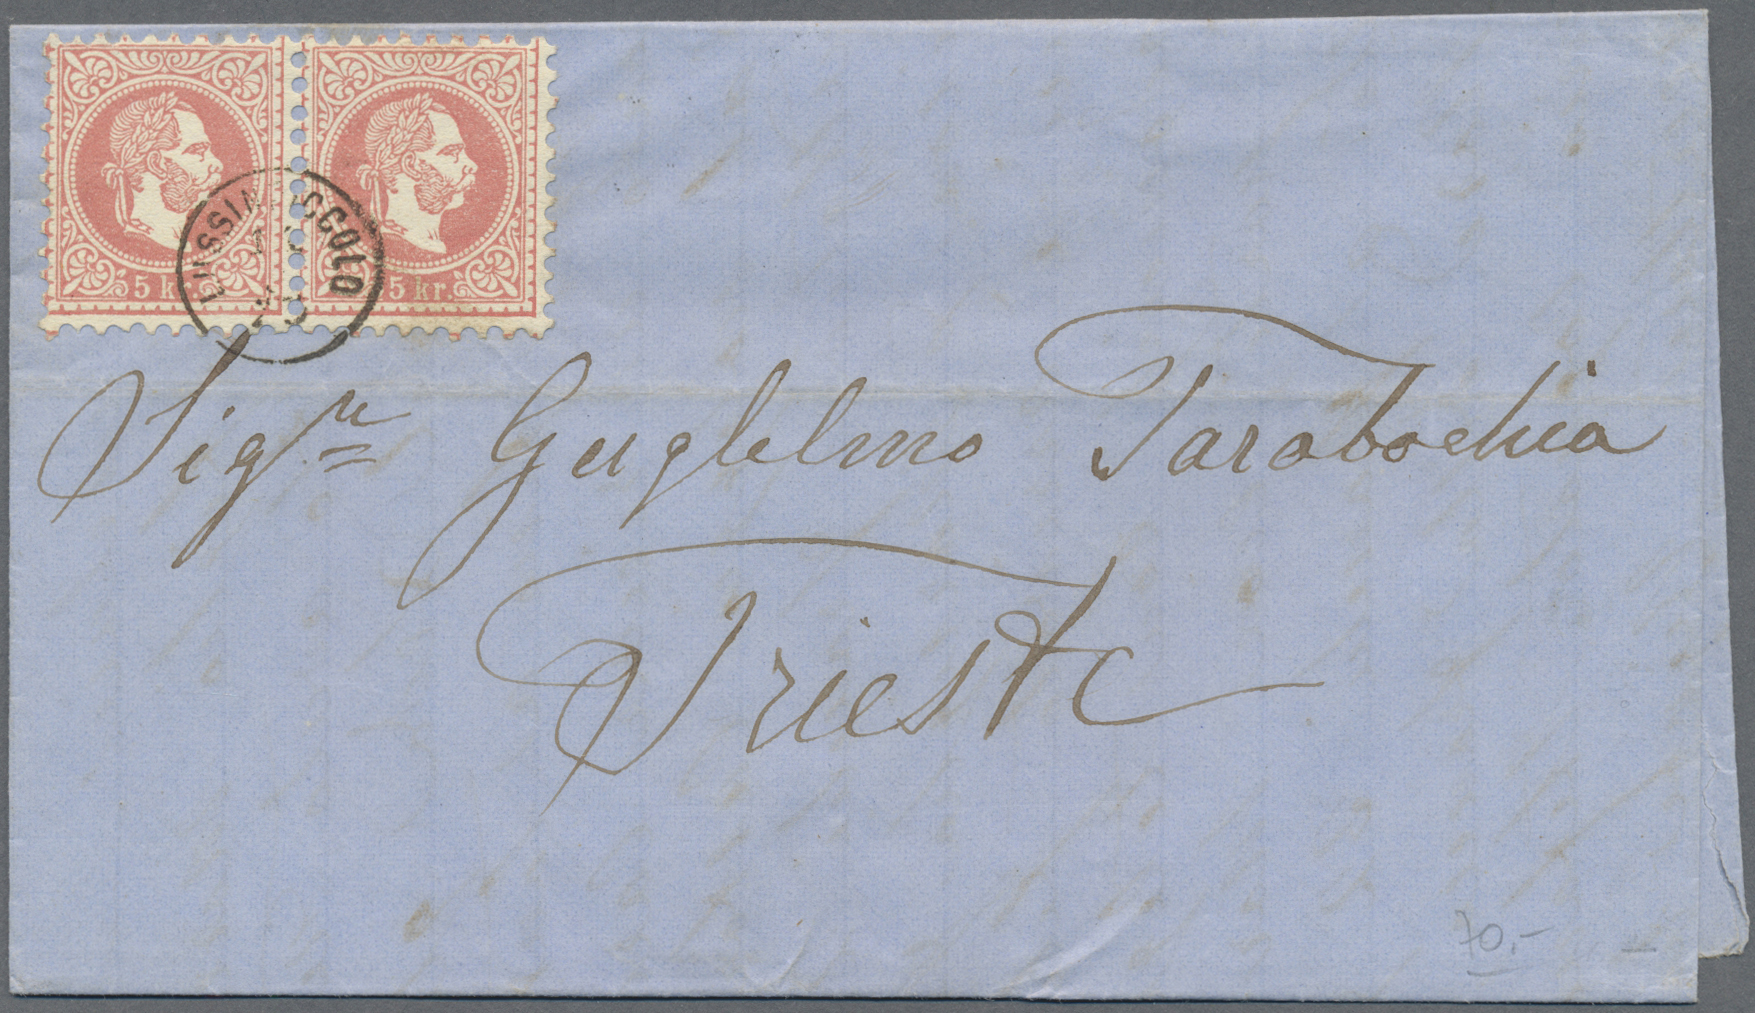 5 kr. 5 kr.
LUSSINPICCOLO
Sigr Guglielmo Tarabochia
Trieste
70.-